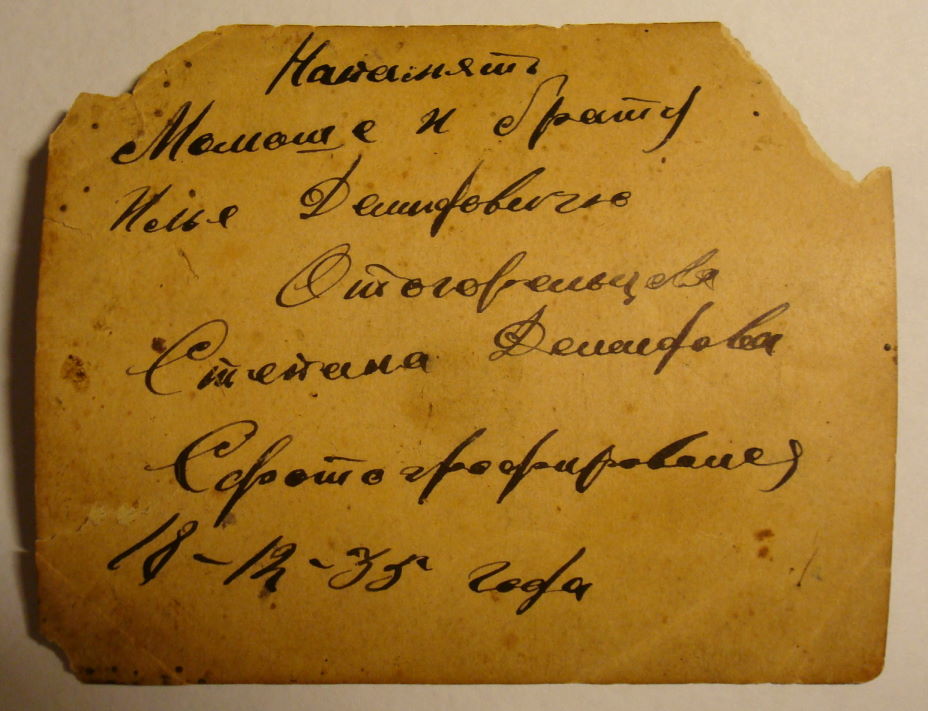 Напамять
Мамаше и брату
Илье Демифовичю
Отогорельцева
Степана Демифова
Сфотографировался
18-12-35 года